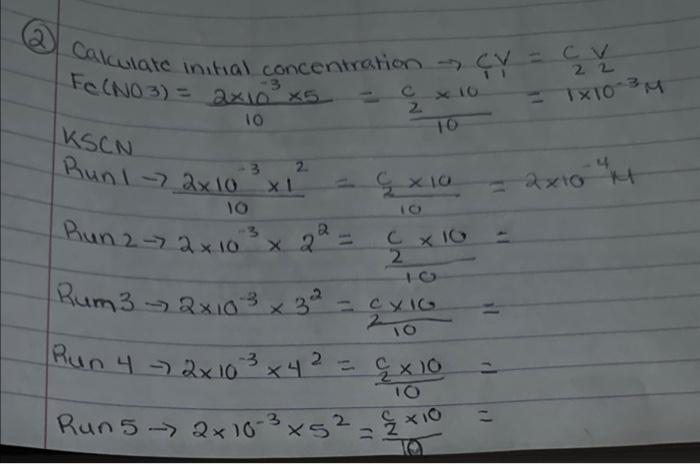 ② Calculate initial concentration → C₁V₁ = C₂V₂
Fe(NO3) = 2x10⁻³ x5 / 10 = C₂ x 10 / 10 = 1x10⁻³M
KSCN
Run1 → 2x10⁻³ x1² / 10 = C₂ x10 / 10 = 2x10⁻⁴M
Run2 → 2x10⁻³ x 2² = C₂ x 10 / 10 =
Rum3 → 2x10⁻³ x 3² = C₂ x10 / 10 =
Run 4 → 2x10⁻³ x 4² = C₂ x10 / 10 =
Run5 → 2x10⁻³ x5² = C₂ x10 / 10 =